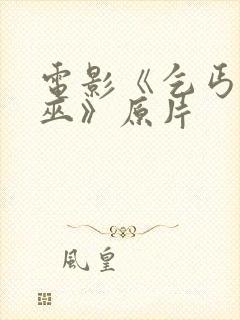 電影《乞丐
巫》原片
風皇